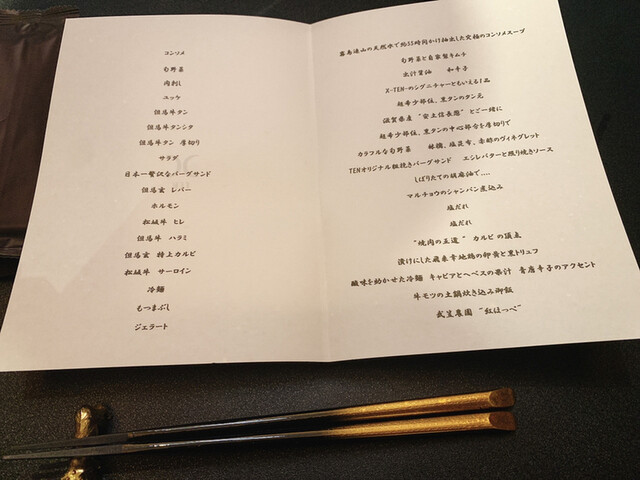 コンソメ
旬野菜
肉刺し
ユッケ
但馬牛タン
但馬牛タンシタ
但馬牛タン 厚切り
サラダ
日本一贅沢なバーグサンド
但馬玄 レバー
ホルモン
松阪牛 ヒレ
但馬牛 ハラミ
但馬玄 特上カルビ
松阪牛 サーロイン
冷麺
もつまぶし
ジェラート
霧島連山の天然水で約55時間かけ抽出した究極のコンソメスープ
旬野菜と自家製キムチ
出汁醤油 和辛子
X-TEN-のシグニチャーともいえる1品
超希少部位、黒タンのタン元
滋賀県産 "安土信長葱" とご一緒に
超希少部位、黒タンの中心部台を厚切りで
カラフルな旬野菜 林檎、塩昆布、赤酢のヴィネグレット
TENオリジナル粗挽きバーグサンド エシレバターと照り焼きソース
しぼりたての胡麻油で....
マルチョウのシャンパン煮込み
塩だれ
塩だれ
"焼肉の王道" カルビの頂点
漬けにした飛来幸地鶏の卵黄と黒トリュフ
酸味を効かせた冷麺 キャビアとヘベスの果汁 青唐辛子のアクセント
牛モツの土鍋炊き込み御飯
武笠農園 "紅ほっぺ"